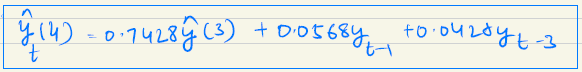 ŷₜ(4) = 0.7428ŷ(3) + 0.0568yₜ₋₁ + 0.0428yₜ₋₃